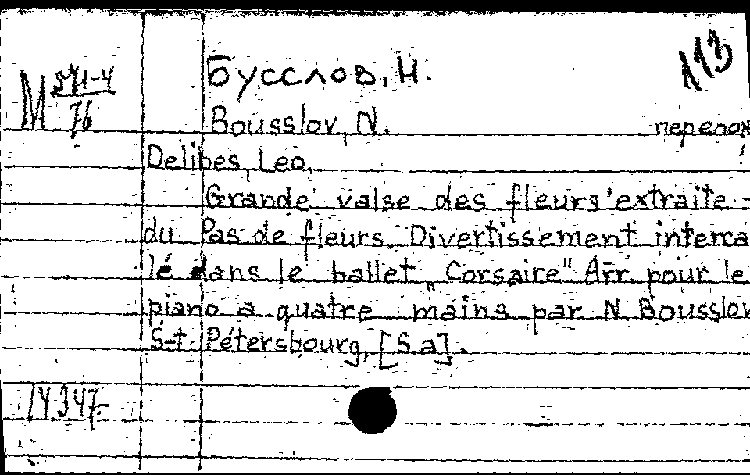 113
Бусслов, Н.
М 571-4/76
Bousslov, N. перелож
Delibes, Leo,
Grande valse des fleurs extraite
du Pas de fleurs. Divertissement interca
lé dans le ballet „Corsaire" Arr. pour le
piano a quatre mains par N Bousslov
S-t Pétersbourg, [S.a].
14347